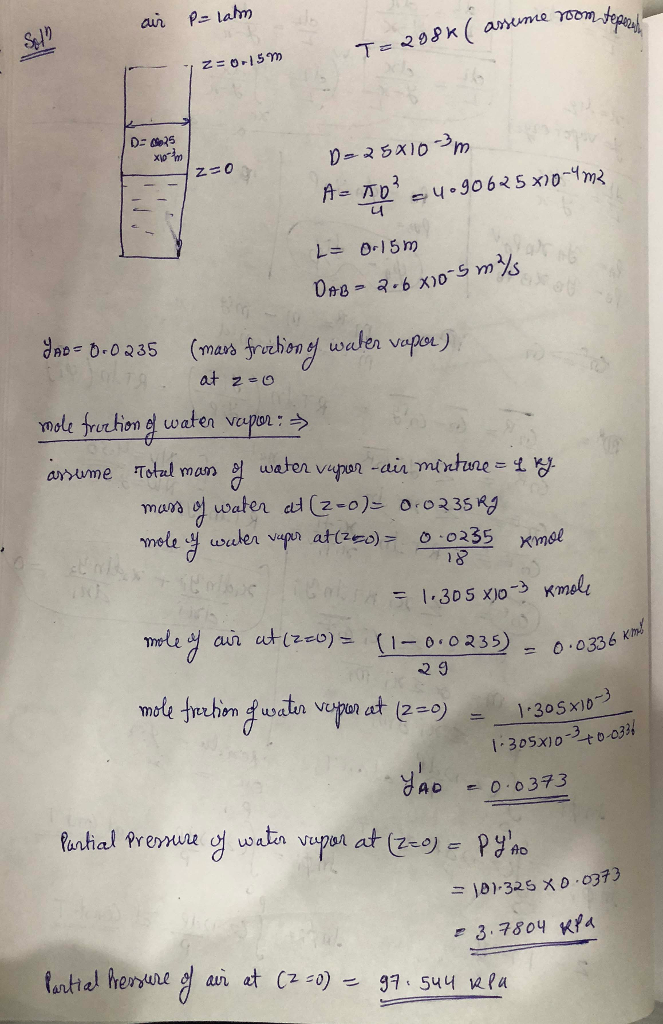 Solⁿ
air P = 1 atm
T = 298K (assume room
z = 0.15m
D = 25
x10⁻³m
z = 0
D = 25x10⁻³m
A = πD²/4 = 4.90625 x10⁻⁴m2
L = 0.15m
DAB = 2.6 x10⁻⁵ m²/s
yA0 = 0.0235 (mass fraction of water vapor)
at z = 0
mole fraction of water vapor: ⇒
assume Total mass of water vapor - air mixture = 1 kg.
mass of water at (z=0) = 0.0235 Kg
mole of water vapor at (z=0) = 0.0235/18 Kmol
= 1.305 x10⁻³ Kmole
mole of air at (z=0) = (1-0.0235)/29 = 0.0336 Kmol
mole fraction of water vapor at (z=0) = 1.305x10⁻³/1.305x10⁻³+0.0336
y'A0 = 0.0373
Partial Pressure of water vapor at (z=0) = Py'A0
= 101.325 x 0.0373
= 3.7804 KPa
Partial Pressure of air at (z=0) = 97.544 KPa